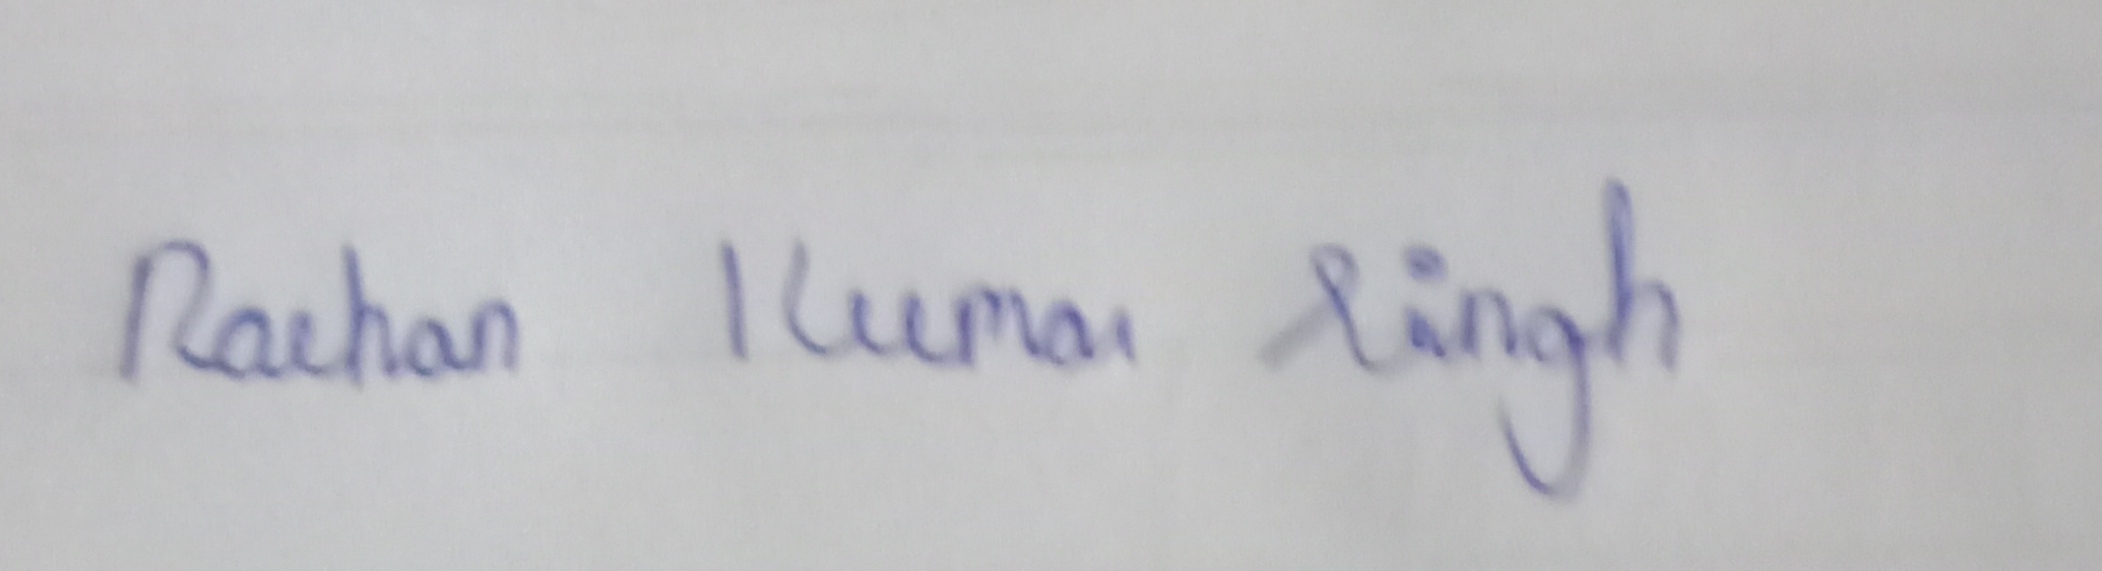 Rachan Kumar Singh